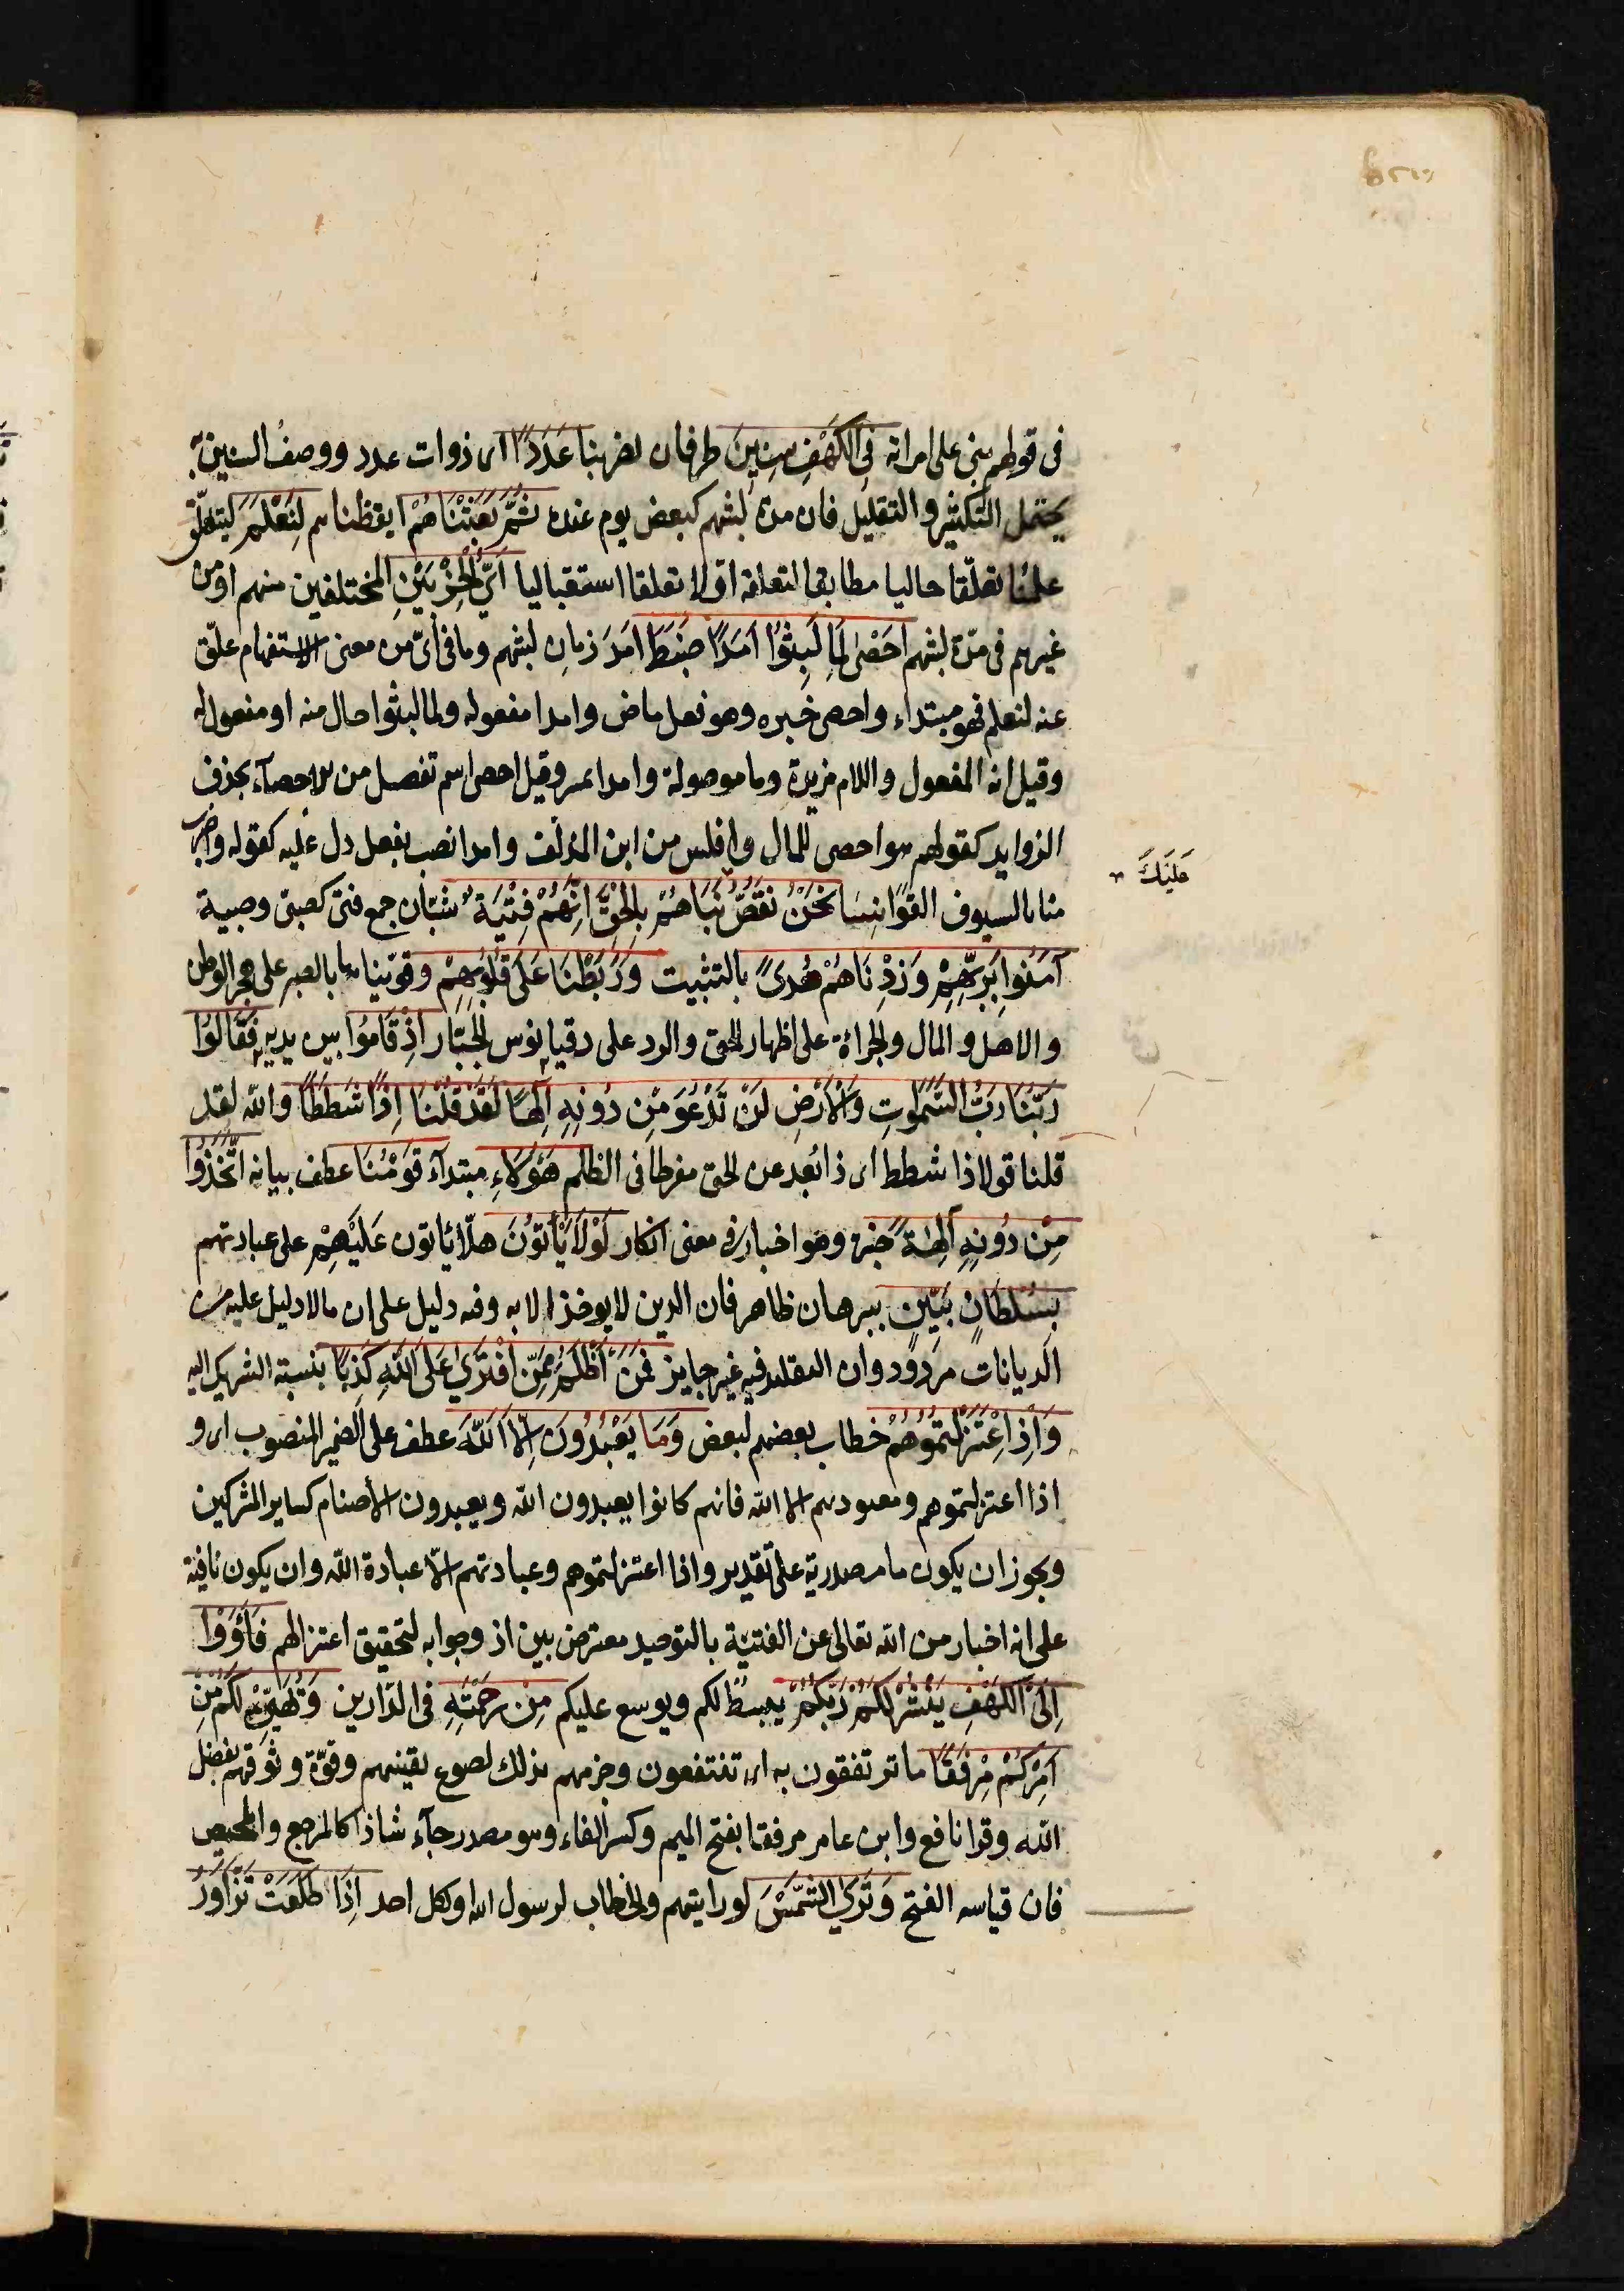 فى قولهم بنى على امراته فِى الكَهْفِ سِنِينَ ظرفان لضربنا عَدَدًا اى ذوات عدد ووصفُ السنين به
يحتمل التكثير والتقليل فان مدة لبثهم كبعض يوم عنده ثُمَّ بَعَثْنَاهُمْ ايقظناهم لِنَعْلَمَ ليتعلّق
علمنا تعلّقا حاليا مطابقا لتعلقه اوّلا تعلقا استقباليا اَىُّ الْحِزْبَيْنِ المختلفين منهم او من
غيرهم فى مدّة لبثهم اَحْصٰى لِمَا لَبِثُوْا اَمَدًا ضَبَطَ اَمَدَ زمانِ لبثهم وما فى اَىّ من معنى الاستفهام علّق
عنه لنعلم فهو مبتداء واحصى خبره وهو فعل ماض وامدا مفعوله ولما لبثوا حال منه او مفعول له
وقيل انه المفعول واللام مزيدة وما موصولة وامدا تمييز وقيل احصى اسم تفضيل من الاحصآء بحذف
الزوايد كقولهم هو احصى للمال وافلس من ابن المذلّف وامدا نصب بفعل دل عليه كقوله واضرب
منا بالسيوف القوانسا نَحْنُ نَقُصُّ عَلَيْكَ نَبَاَهُمْ بِالْحَقِّ اِنَّهُمْ فِتْيَةٌ شبّان جمع فتى كصبىّ وصبية
آمَنُوا بِرَبِّهِمْ وَزِدْنَاهُمْ هُدىً بالتثبيت وَرَبَطْنَا عَلَى قُلُوبِهِمْ وقوّيناها بالصبر على هجر الوطن
والاهل والمال والجراة على اظهار الحق والرد على دقيانوس الجبّار اِذْ قَامُوا بين يديه فَقَالُوْا
رَبُّنَا رَبُّ السَّمٰوَاتِ وَالْاَرْضِ لَنْ نَدْعُوَ مِنْ دُونِهِ اِلٰهًا لَقَدْ قُلْنَا اِذًا شَطَطًا والله لقد
قلنا قولا ذا شطط اى ذا بُعد عن الحق مفرطا فى الظلم هٰؤُلَاءِ مبتدآء قَوْمُنَا عطف بيانه اتَّخَذُوْا
مِنْ دُونِهِ آلِهَةً خبره وهو اخبار فى معنى انكار لَوْلَا يَاْتُوْنَ هلّا ياتون عَلَيْهِمْ على عبادتهم
بِسُلْطَانٍ بَيِّنٍ ببرهان ظاهر فان الدين لا يوخذ الا به وفيه دليل على ان ما لا دليل عليه من
الديانات مردود وان التقليد فيه غير جايز فَمَنْ اَظْلَمُ مِمَّنِ افْتَرَىٰ عَلَى اللهِ كَذِبًا بنسبة الشريك اليه
وَاِذِ اعْتَزَلْتُمُوْهُمْ خطاب بعضهم لبعض وَمَا يَعْبُدُونَ اِلَّا اللهَ عطف على الضمير المنصوب اى و
اذا اعتزلتموهم ومعبوديهم الا الله فانهم كانوا يعبدون الله ويعبدون الأصنام كساير المشركين
ويجوز ان يكون ما مصدرية على تقدير واذا اعتزلتموهم وعبادتهم الّا عبادة الله وان يكون نافية
على انه اخبار من الله تعالى عن الفتيَة بالتوحيد معترض بين اذ وجوابه لتحقيق اعتزالهم فَأْوُوْا
اِلَى الْكَهْفِ يَنْشُرْ لَكُمْ رَبُّكُمْ يبسط لكم ويوسع عليكم مِنْ رَحْمَتِهِ فى الدّارين وَيُهَيِّئْ لَكُمْ مِنْ
اَمْرِكُمْ مِرْفَقًا ما ترتفقون به اى تنتفعون وجزمهم بذلك لنصوع يقينهم وقوّة وثوقهم بفضل
الله وقرا نافع وابن عامر مرفقا بفتح الميم وكسر الفاء وهو مصدر جآء شاذا كالمرجع والمحيص
فان قياسه الفتح وَتَرَى الشَّمْسَ لو رايتهم والخطاب لرسول الله ولكل احد اِذَا طَلَعَتْ تَزَّاوَرُ
عَلَيْكَ